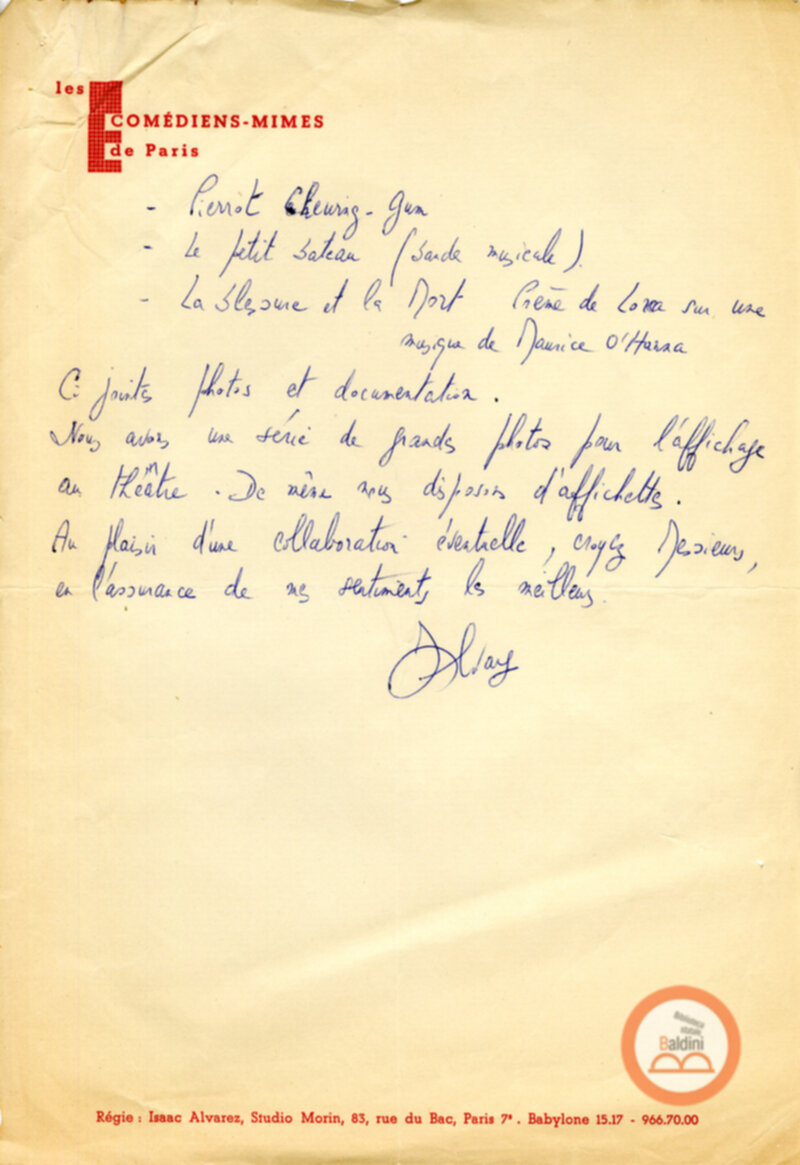 les
COMÉDIENS-MIMES
de Paris
- Pierrot Cheuring-Gum
- Le petit bateau (bande musicale).
- La blessure et la Mort Poème de Lorca sur une
musique de Maurice O'Hanna
Ci jointes photos et documentation.
Nous avons une série de grandes photos pour l'affichage
au théâtre. De même nous disposons d'affichettes.
Au plaisir d'une collaboration éventuelle, croyez Messieurs,
en l'assurance de mes sentiments les meilleurs.
Alvarez
Biblioteca
statale
Baldini
Régie : Isaac Alvarez, Studio Morin, 83, rue du Bac, Paris 7e. Babylone 15.17 - 966.70.00